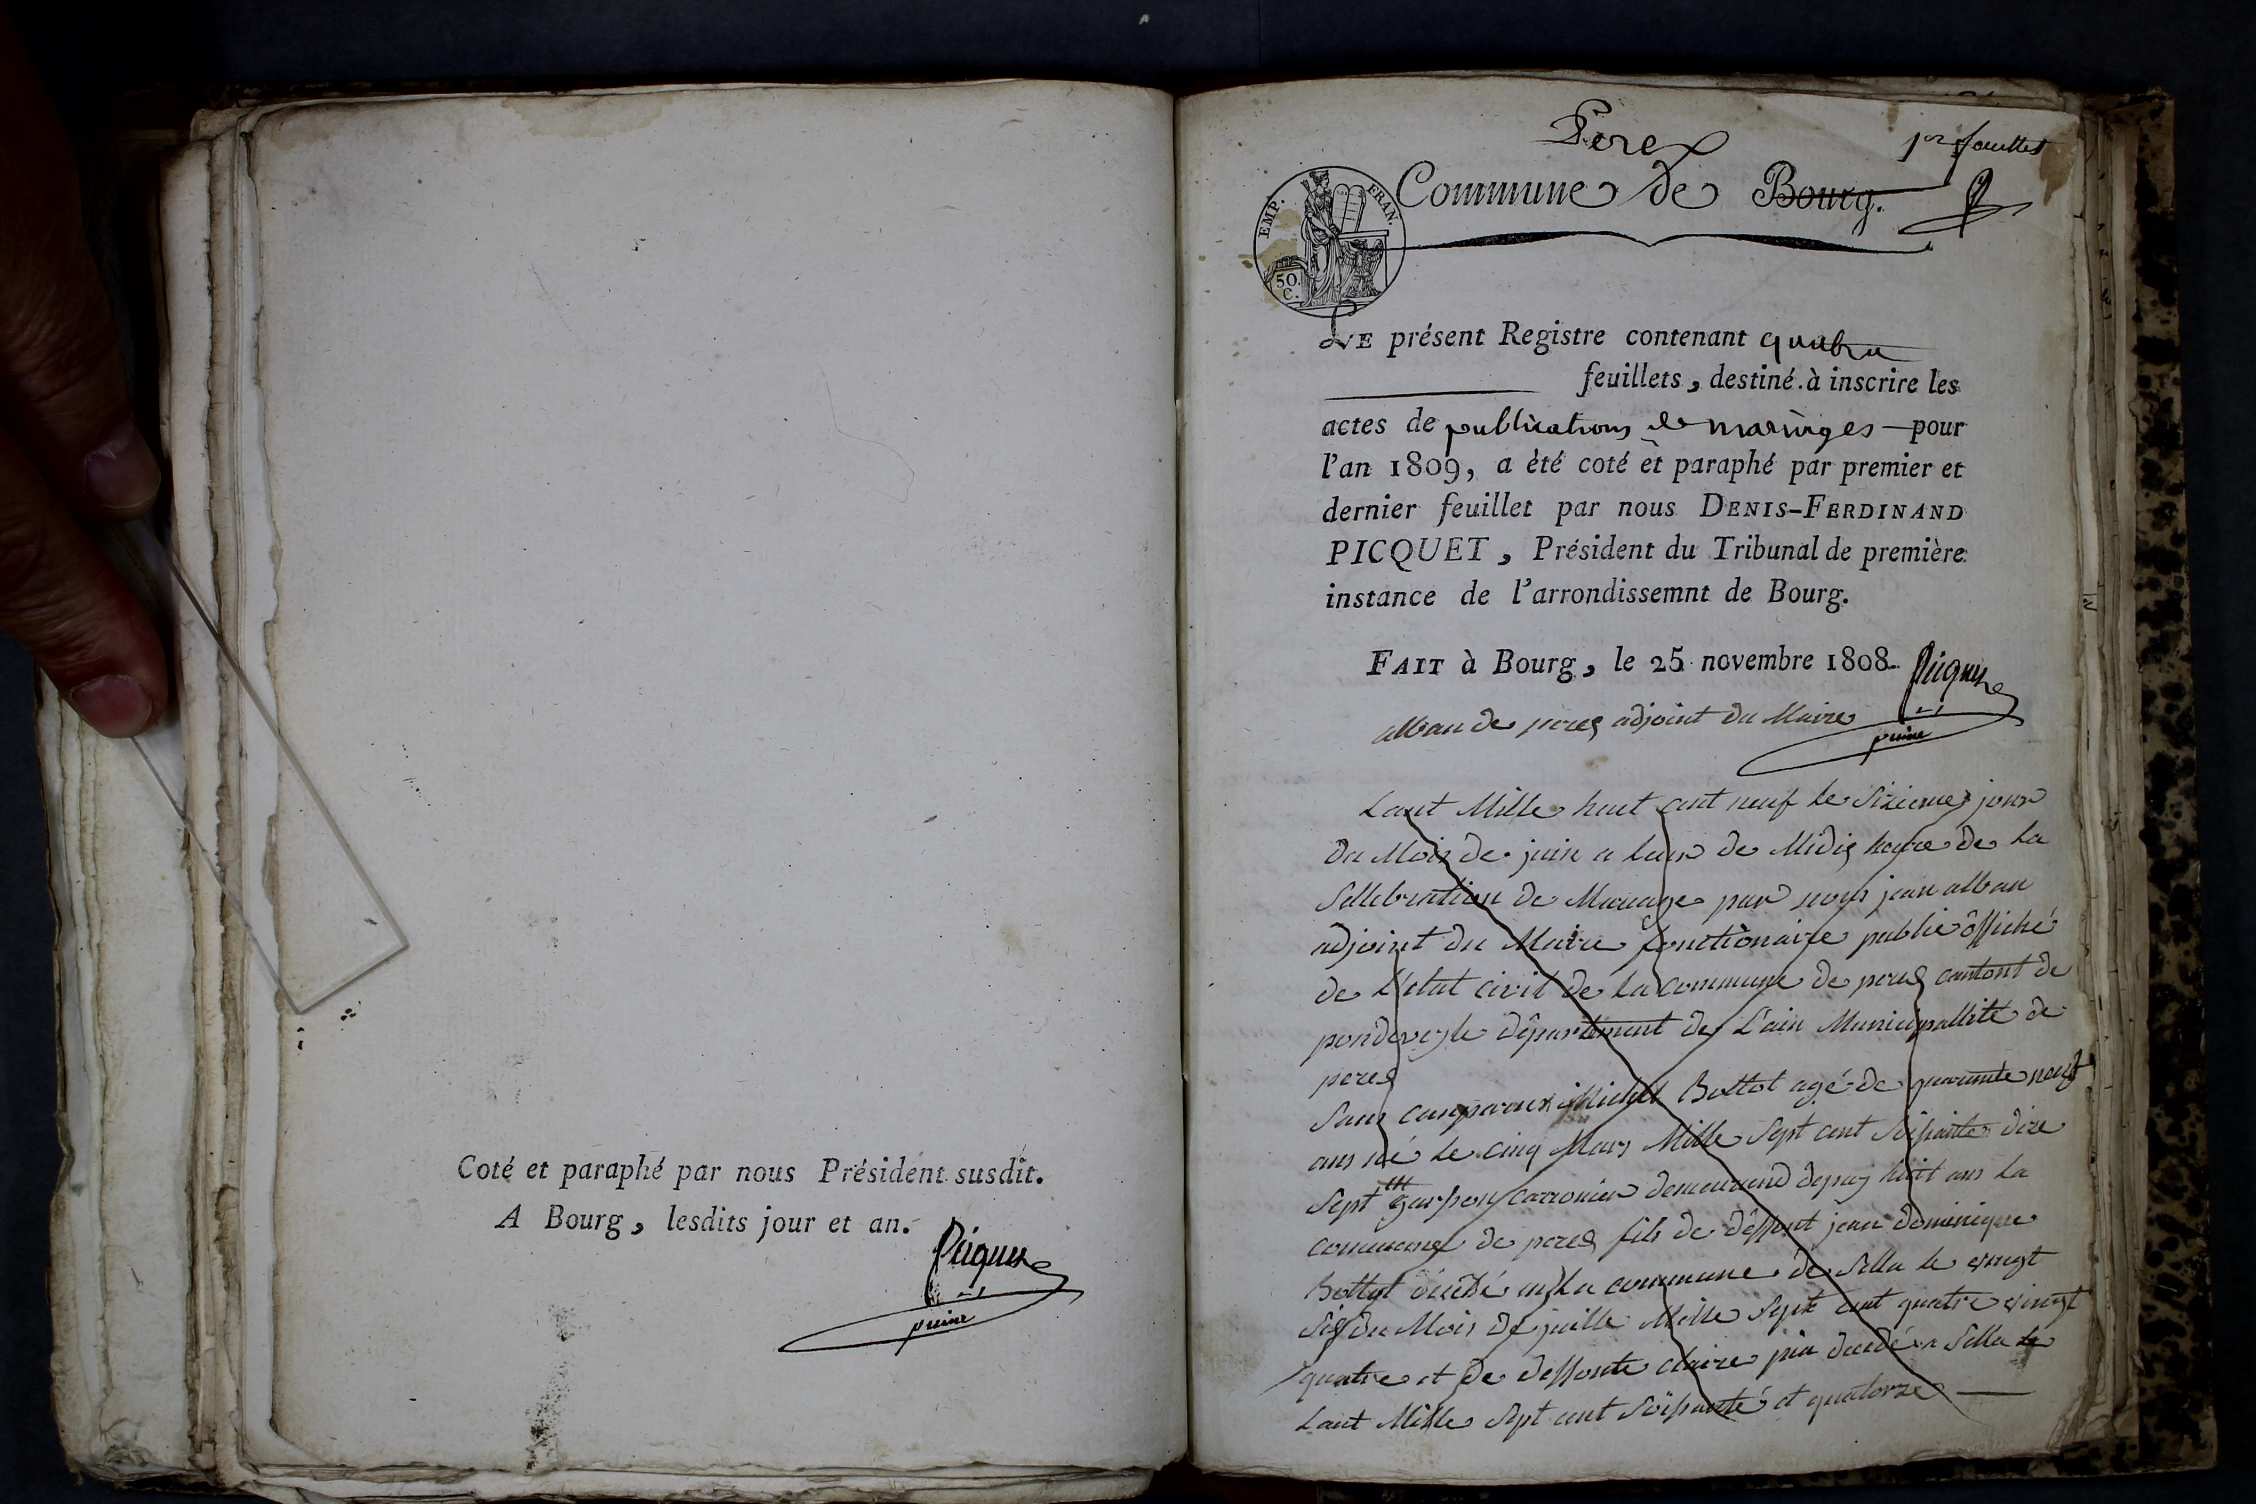 Coté et paraphé par nous Président susdit.
A Bourg, lesdits jour et an.
Picquet
Perex
1er feuillet
Commune de Bourg.
EMP. FRAN.
50.
C.
LE présent Registre contenant quatre
feuillets, destiné à inscrire les
actes de publications de mariages pour
l'an 1809, a été coté et paraphé par premier et
dernier feuillet par nous DENIS-FERDINAND
PICQUET, Président du Tribunal de première
instance de l'arrondissemnt de Bourg.
FAIT à Bourg, le 25 novembre 1808.
Picquet
alban de perex adjoint du Maire
Lant Mille huit cent neuf le Sizieme jour
du Mois de juin a leur de Midis heure de la
Sellebration de Mariage par nous jean alban
adjoint du Maire fonctionaire publie öffiché
de L'etat civil de la commune de perex cantont de
pondeveyle département de L'ain Municipallité de
perex
Sans comparoux Michel Bottot agé de quarante neuf
ans né le cinq Mars Mille Sept cent Soisante dixe
Sept garson carronier demeurand depuy huit ans la
commune de perex fils de deffont jean dominique
Bottot décédé en la commune de Silla le vingt
Six du Mois de juille Mille Sept cent quatre vingt
quatre et de deffonte claire décédé a Silla le
Lant Mille Sept cent Soisante et quatorze